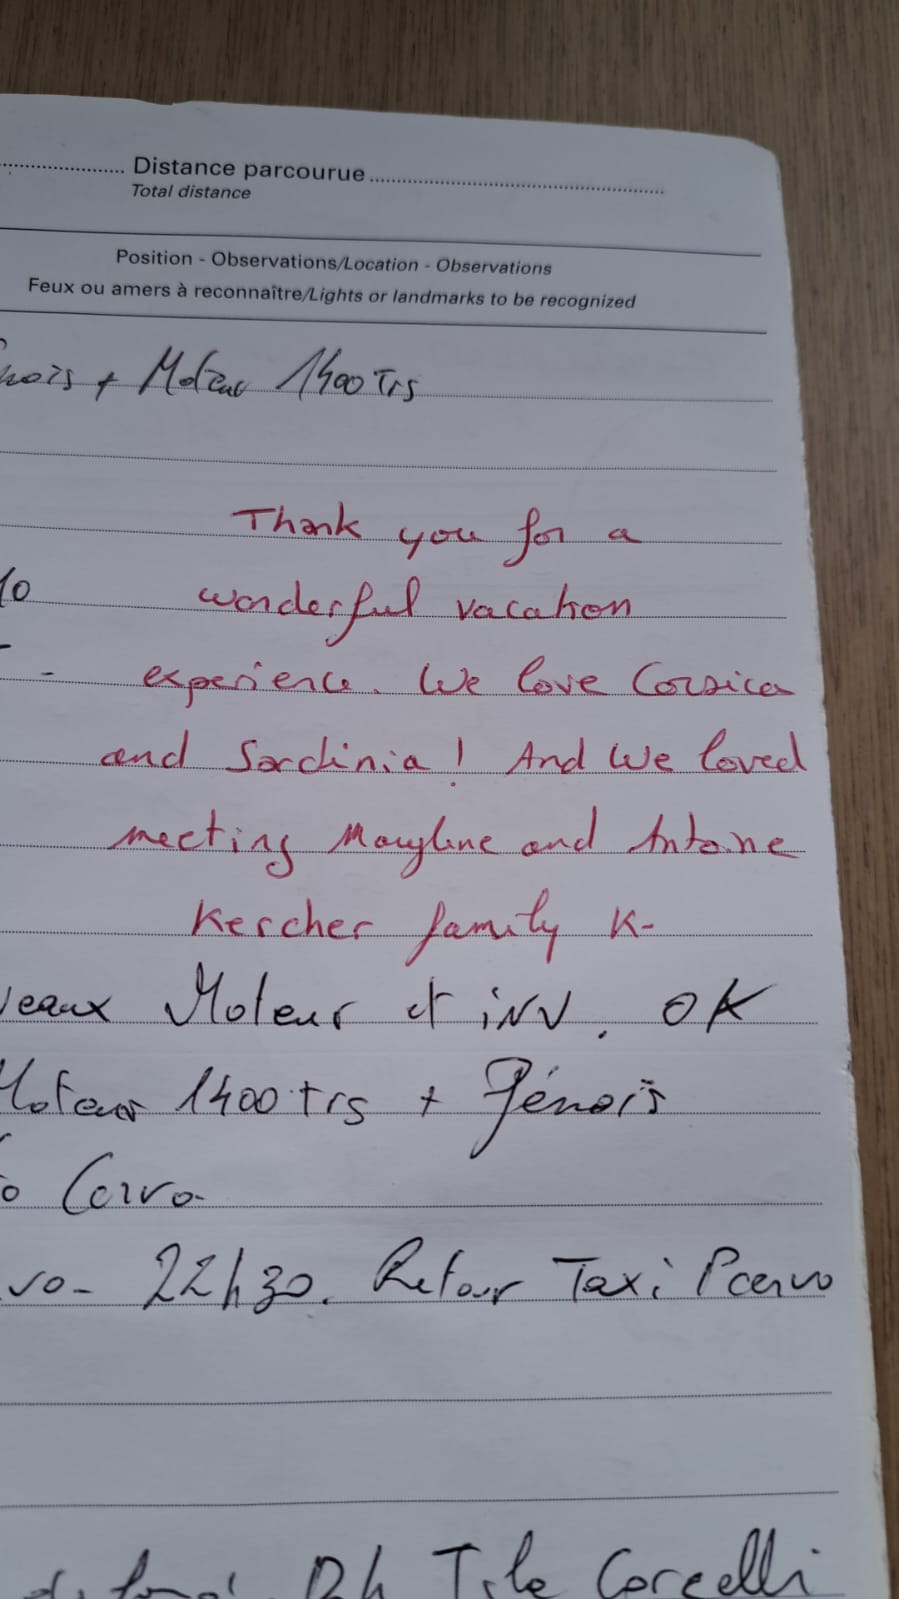 Distance parcourue
Total distance
Position - Observations/Location - Observations
Feux ou amers à reconnaître/Lights or landmarks to be recognized
+ Moteur 1400 Trs
Thank you for a
wonderful vacation
experience. We love Corsica
and Sardinia! And We loved
meeting Maryline and Antoine
Kercher family K-
Moteur et inv. OK
Moteur 1400 trs + Génois
Cervo
vo- 22h30. Retour Taxi Pcervo